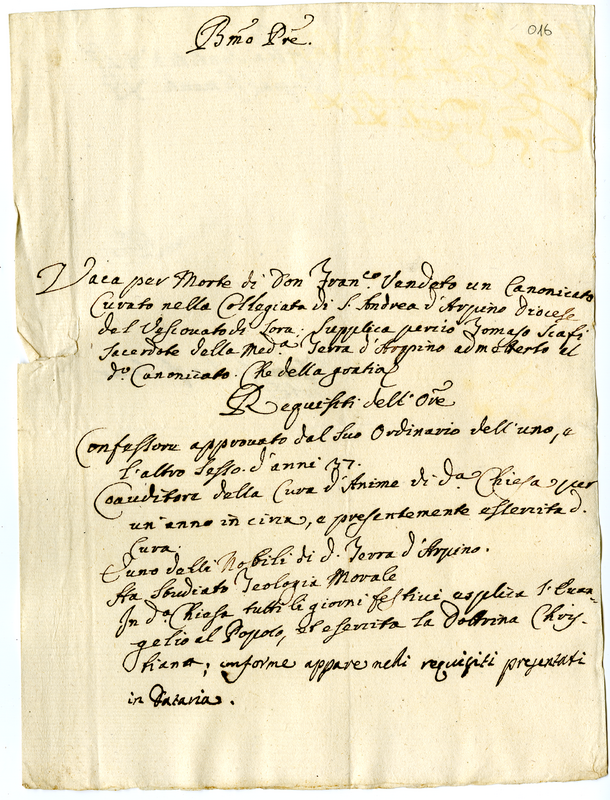 016
Bmo Pre.
Vaca per Morte di Don Franco. Vendeto un Canonicato
Curato nella Collegiata di S. Andrea d'Arpino Diocese
del Vescovato di Sora. Supplica perciò Tomaso Scafi
Sacerdote della Meda. Terra d'Arpino admetterlo al
do. Canonicato. Che della gratia
Requisiti dell'Ore
Confessore approvato dal suo Ordinario dell'uno, e
l'altro Sesso. d'anni 37.
Coauditore della Cura d'Anime di da. Chiesa per
un'anno in circa, e presentemente essercita d.
Cura.
E uno delli Nobili di d. Terra d'Arpino.
Ha Studiato Teologia Morale
In da. Chiesa tutti li giorni festivi esplica l'Evan-
gelio al Popolo, et esercita la Dottrina Chris-
tiana, conforme appare nelli requisiti presentati
in Dataria.